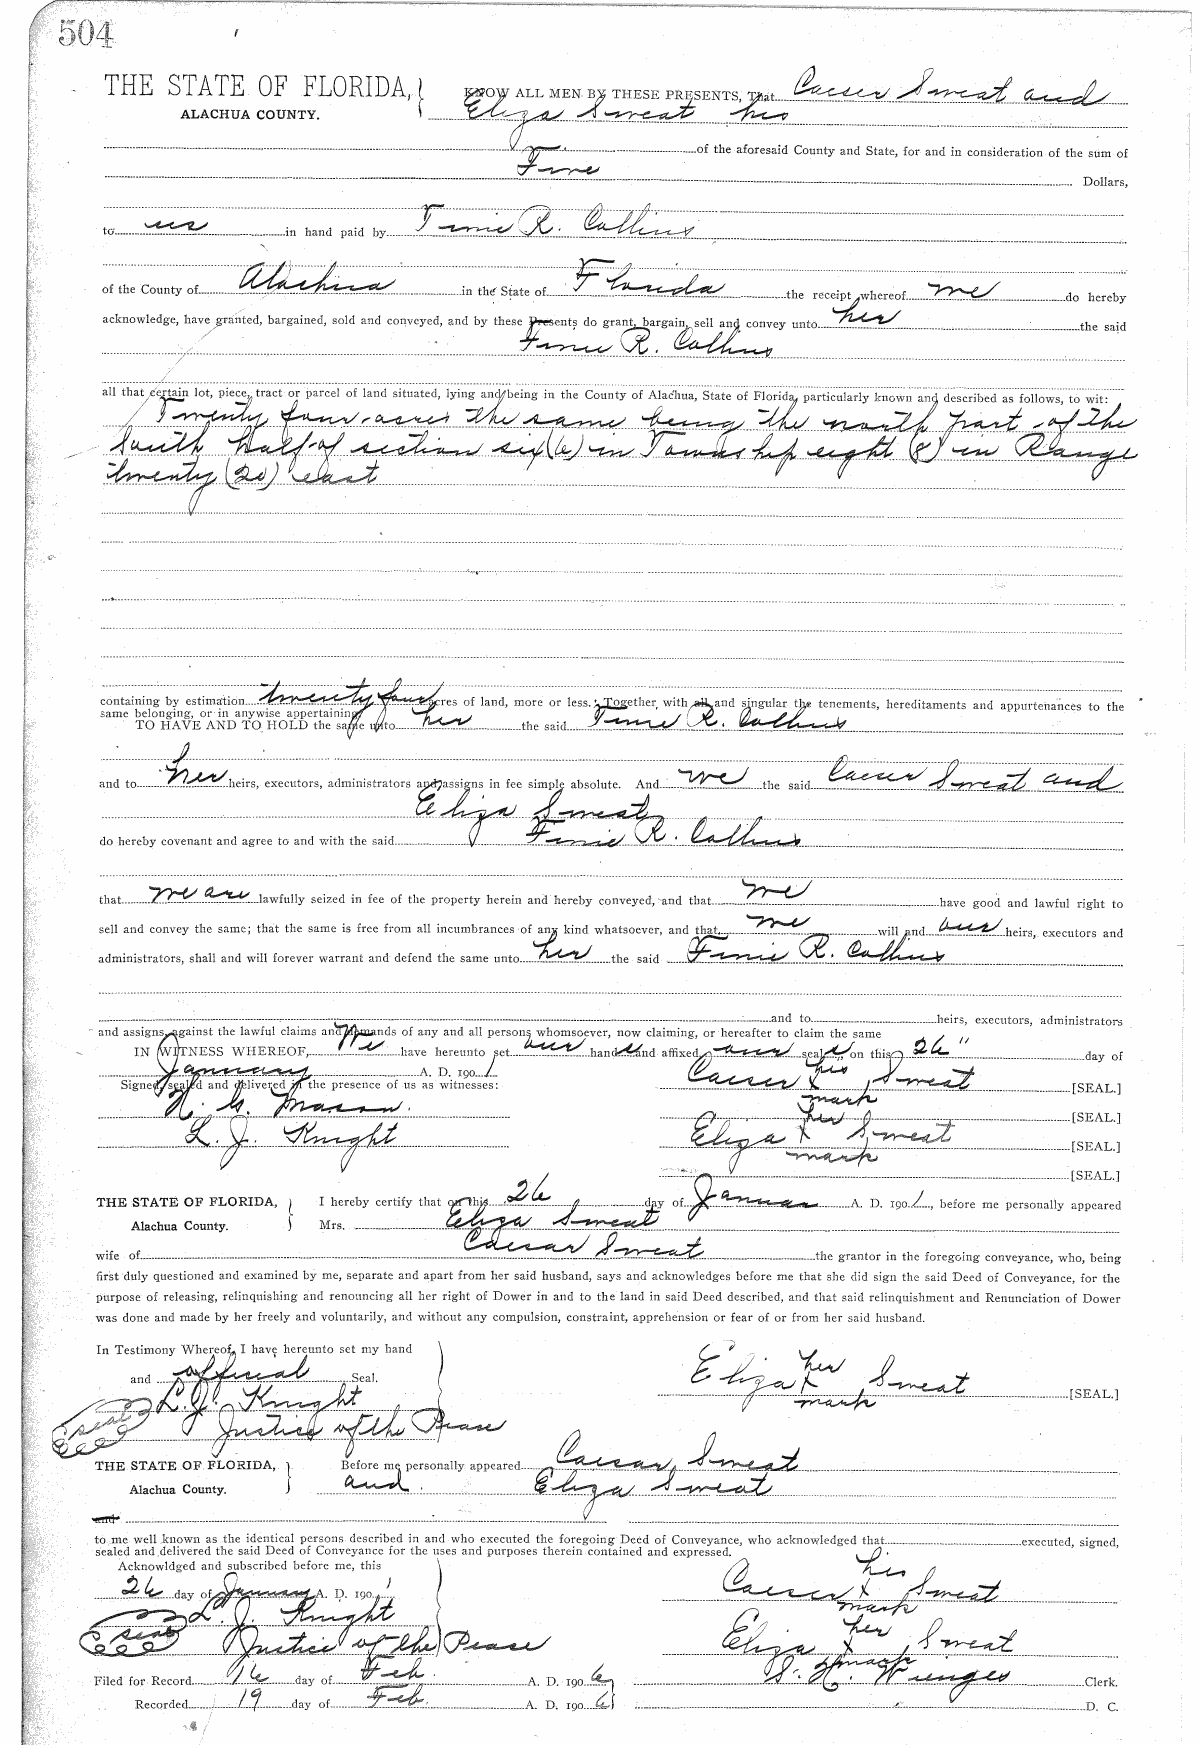 504
THE STATE OF FLORIDA,
ALACHUA COUNTY.
KNOW ALL MEN BY THESE PRESENTS, That Caeser Sweat and
Eliza Sweat his
of the aforesaid County and State, for and in consideration of the sum of
Five
Dollars,
to us in hand paid by R. Collins
of the County of Alachua in the State of Florida the receipt whereof we do hereby
acknowledge, have granted, bargained, sold and conveyed, and by these Presents do grant, bargain, sell and convey unto her the said
R. Collins
all that certain lot, piece, tract or parcel of land situated, lying and being in the County of Alachua, State of Florida, particularly known and described as follows, to wit:
Twenty four acres the same being the north part of the
South half of section six (6) in Township eight (8) in Range
twenty (20) east
containing by estimation twenty four acres of land, more or less. Together with all and singular the tenements, hereditaments and appurtenances to the
same belonging, or in anywise appertaining
TO HAVE AND TO HOLD the same unto her the said R. Collins
and to her heirs, executors, administrators and assigns in fee simple absolute. And we the said Caeser Sweat and
Eliza Sweat
do hereby covenant and agree to and with the said R. Collins
that we are lawfully seized in fee of the property herein and hereby conveyed, and that we have good and lawful right to
sell and convey the same; that the same is free from all incumbrances of any kind whatsoever, and that we will and our heirs, executors and
administrators, shall and will forever warrant and defend the same unto her the said R. Collins
and to heirs, executors, administrators
and assigns, against the lawful claims and demands of any and all persons whomsoever, now claiming, or hereafter to claim the same
IN WITNESS WHEREOF, We have hereunto set our hands and affixed our seals on this 26" day of
January A. D. 1901
Signed, sealed and delivered in the presence of us as witnesses:
Caeser his x mark Sweat [SEAL.]
Mason.
[SEAL.]
L. J. Knight
Eliza her x mark Sweat [SEAL.]
[SEAL.]
THE STATE OF FLORIDA,
Alachua County.
I hereby certify that on this 26 day of Januar A. D. 1901, before me personally appeared
Mrs. Eliza Sweat
wife of Caesar Sweat the grantor in the foregoing conveyance, who, being
first duly questioned and examined by me, separate and apart from her said husband, says and acknowledges before me that she did sign the said Deed of Conveyance, for the
purpose of releasing, relinquishing and renouncing all her right of Dower in and to the land in said Deed described, and that said relinquishment and Renunciation of Dower
was done and made by her freely and voluntarily, and without any compulsion, constraint, apprehension or fear of or from her said husband.
In Testimony Whereof, I have hereunto set my hand
and official Seal.
Eliza her x mark Sweat [SEAL.]
L. J. Knight
seal
Justice of the Pease
THE STATE OF FLORIDA,
Alachua County.
Before me personally appeared Caesar Sweat
and Eliza Sweat
and
to me well known as the identical persons described in and who executed the foregoing Deed of Conveyance, who acknowledged that executed, signed,
sealed and delivered the said Deed of Conveyance for the uses and purposes therein contained and expressed.
Acknowldged and subscribed before me, this
26 day of January A. D. 1901
Caeser his x mark Sweat
L. J. Knight
seal
Justice of the Pease
Eliza her x mark Sweat
Filed for Record 16 day of Feb. A. D. 1906
S. H. Wienges Clerk.
Recorded 19 day of Feb. A. D. 1906
D. C.